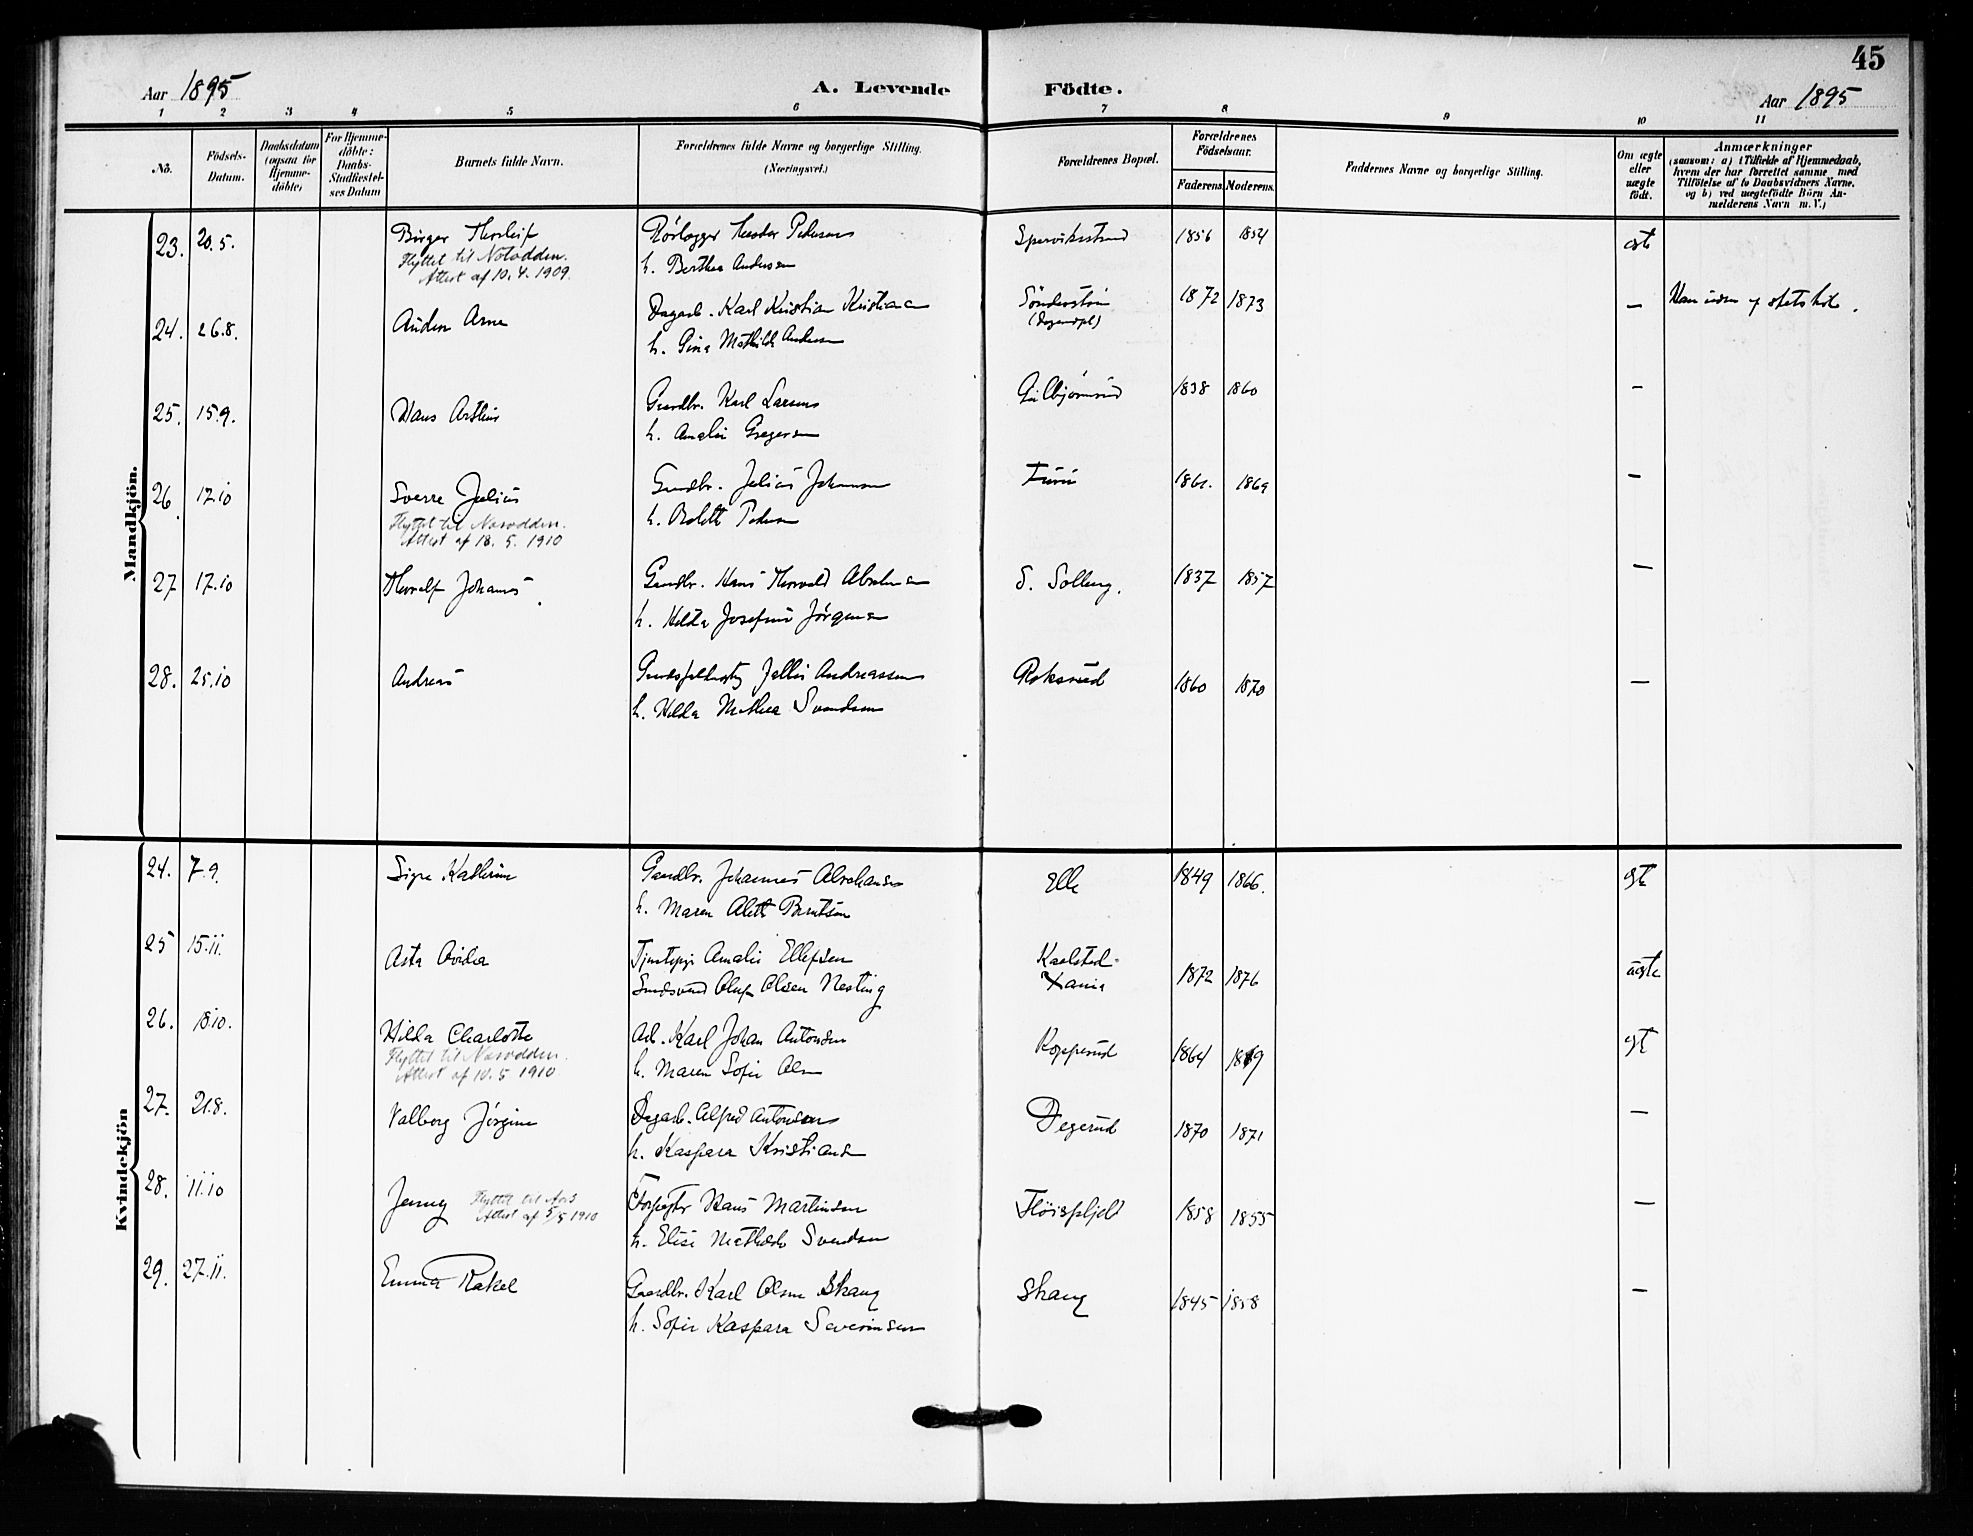 45
Aar 1895
A. Levende Födte.
Aar 1895
1 2 3 4 5 6 7 8 9 10 11
No.
Födsels-
Datum.
Daabsdatum
(ogsaa for
Hjemme-
döbte)
For Hjemme-
döbte:
Daabs-
Stadfæstel-
ses Datum
Barnets fulde Navn.
Forældrenes fulde Navne og borgerlige Stilling.
(Næringsvei.)
Forældrenes Bopæl.
Forældrenes
Födselsaar.
Faderens. Moderens.
Faddernes Navne og borgerlige Stilling.
Om ægte
eller
uægte
födt.
Anmærkninger
(saasom: a) i Tilfælde af Hjemmedaab,
hvem der har forrettet samme med
Tilföielse af to Daabsvidners Navne.
og b) ved uægtefödte Börn An-
melderens Navn m. V.)
Mandkjön.
23. 20.5. Birger Thorleif Pedersen 1856 1854 ægte
Flyttet til Notodden.
Attest af 10.4.1909.
h. Berthea Andersen
24. 26.8. Anders Arne Dagarb. Karl Kristian 1872 1873 —
h. Gina Mathilde Andersen
25. 15.9. Hans Arthur Gaardbr. Karl Larsen 1838 1860 —
h. Amalie Gregersen
26. 17.10 Sverre Julius Gaardbr. Julius Johansen Furu 1869 —
Flyttet til
Attest af 18.5.1910
h. Pedersen
27 17.10 Thoralf Johannes Gaardbr. Hans Thorvald Abrahamsen S. Solberg. 1837 1857 —
h. Hilda Josefine Jørgensen
28. 25.10 Andreas Andreassen Roksrud 1860 1870 —
h. Hilda Mathea Svendsen
Kvindekjön
24. 7.9. Signe Kathrine Gaardbr. Johannes Abrahamsen Elle 1849 1866. ægte
h. Maren Alette Berntsen
25 15.11. Asta Ovidia Tjenestepige Amalie Ellefsen Kaalstad 1872 1876 uægte
Oluf Olsen Nesting Xania
26. 18.10. Hilda Charlotte Arb. Karl Johan Antonsen Kopperud 1864 1869 ægte
Flyttet til
Attest af 10.5 1910
h. Maren Sofie Olsen
27. 21.8. Valborg Jørgine Dagarb. Alfred Antonsen Degerud 1870 1871 —
h. Kaspara Kristiansen
28. 11.10 Jenny Flyttet til Aas
Attest af 5/5 1910
Hans Martinsen Fløispjeld 1858 1855 —
h. Elise Mathilde Svendsen
29. 27.11. Emma Rakel Gaardbr. Karl Olsen Skaug Skaug 1845 1858 —
h. Sofie Kaspara Severinsen